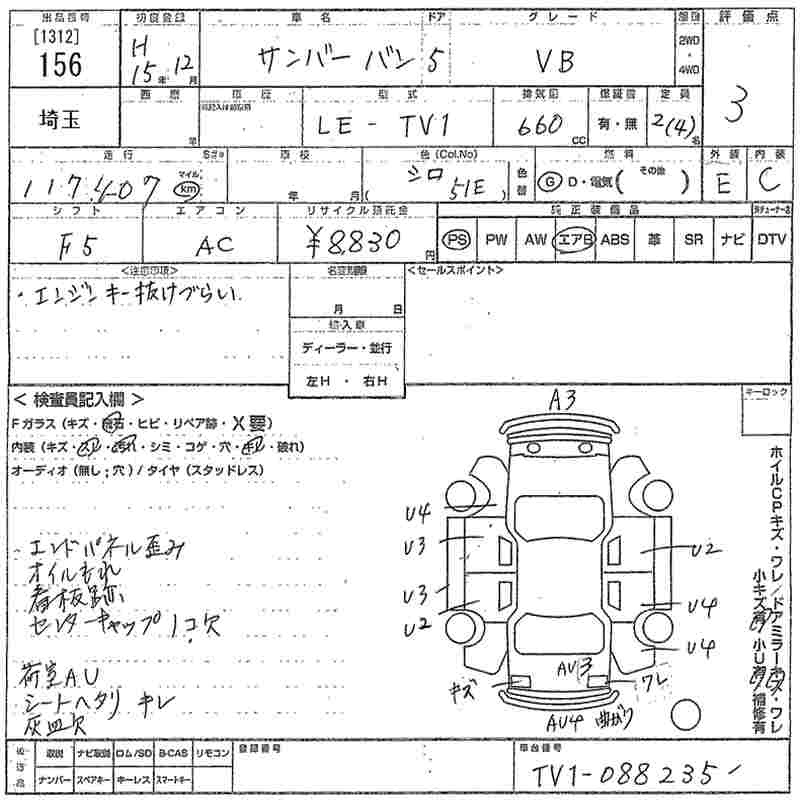 出品番号 初度登録 車名 ドア グレード 駆動 評価点
[1312]
156
H 15年 12月
サンバー バン 5 VB
2WD
・
4WD
3
埼玉
車歴 型式 排気量 保証書 定員
LE - TV1 660cc 有・無 2(4)名
走行 車検 色(Col.No) 燃料 外装 内装
117,407 マイル km 年 月 シロ 51E 色替 G D・電気( その他 ) E C
シフト エアコン リサイクル預託金 純正装備品
F5 AC ¥8,830円 PS PW AW エアB ABS 革 SR ナビ DTV
<注意事項> 名変期限 <セールスポイント>
・エンジンキー抜けづらい
月 日
輸入車
ディーラー・並行
左H・右H
< 検査員記入欄 >
キーロック
Fガラス (キズ・飛石・ヒビ・リペア跡・X要)
内装 (キズ・スレ・汚れ・シミ・コゲ・穴・キレ・破れ)
オーディオ (無し;穴) / タイヤ (スタッドレス)
A3
U4
U3
U3
U2
U2
U4
U4
AU3
キズ
ワレ
AU4 曲がり
エンドパネル歪み
オイルもれ
看板跡
センターキャップ1コ欠
荷室AU
シートヘタリ キレ
灰皿欠
ホイルCPキズ・ワレ/ドアミラーキズ・ワレ
小キズ有 小U有 補修有
後送品 取説 ナビ取説 ロム/SD B-CAS リモコン 登録番号 車台番号
ナンバー スペアキー キーレス スマートキー
TV1-088235